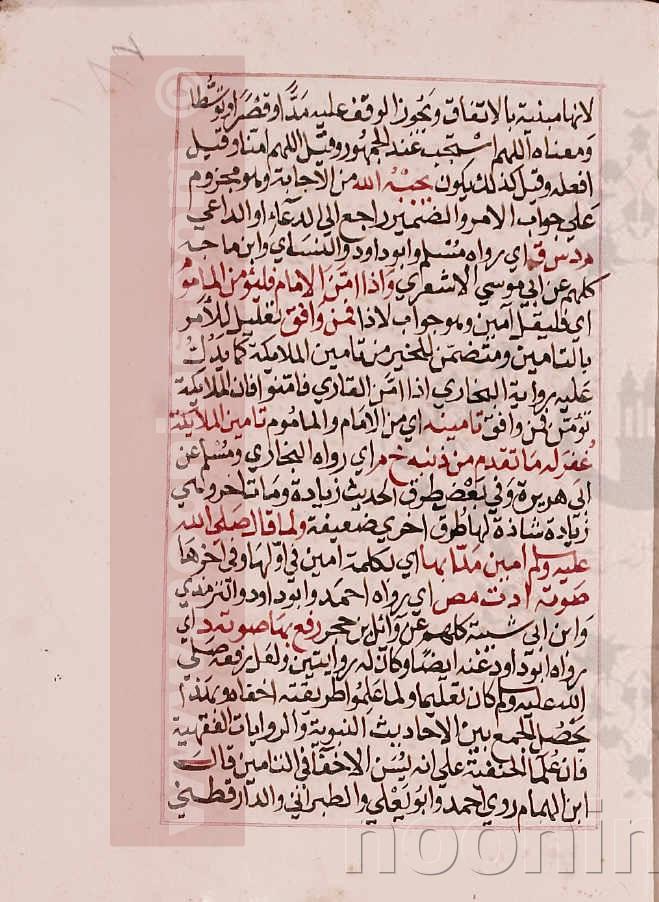 لانها مبنية بالاتفاق ويجوز الوقف عليه مدًّا وقصرًا وتوسّطا
ومعناه اللهم استجب عند الجمهور وقيل اللهم امنا وقيل
افعله وقيل كذلك يكون يجبْهُ الله من الاجابة وهو مجزوم
علي جواب الامر والضمير راجع الي الدعاء او الداعي
م د س ق اي رواه مسلم وابو داود والنساي وابن ماجه
كلهم عن ابي موسي الاشعري واذا امّن الامام فليؤمن المامو
اي فليقل امين وهو جواب لاذا فمن وافق تعليل للأمر
بالتامين ومتضمن للخير من تامين الملايكة كما يدل
عليه رواية البخاري اذا امن القاري فامنوا فان الملايكة
تؤمن فمن وافق تامينه اي من الامام والماموم تامين الملايكة
غفر له ما تقدم من ذنبه خ م اي رواه البخاري ومسلم عن
ابي هريرة وفي بعض طرق الحديث زيادة وما تاخر وهي
زيادة شاذة لها طرق اخري ضعيفة ولما قال صلي الله
عليه وسلم امين مدّ بها اي بكلمة امين في اولها وفي اخرها
صوته ا د ت مص اي رواه احمد وابو داود والترمذي
وابن ابي شيبة كلهم عن وائل بن حجر رفع بها صوته د اي
رواه ابو داود عنه ايضًا وكان له روايتين ولعل رفعه صلي
الله عليه وسلم كان تعليما ولما علموا طريقته اخفاه وبهذا
يحصل الجمع بين الاحاديث النبوية والروايات الفقهية
فان علما الحنفية علي انه يسن الاخفا في التامين قال
ابن الهمام روي احمد وابو يعلي والطبراني والدارقطني
noonin